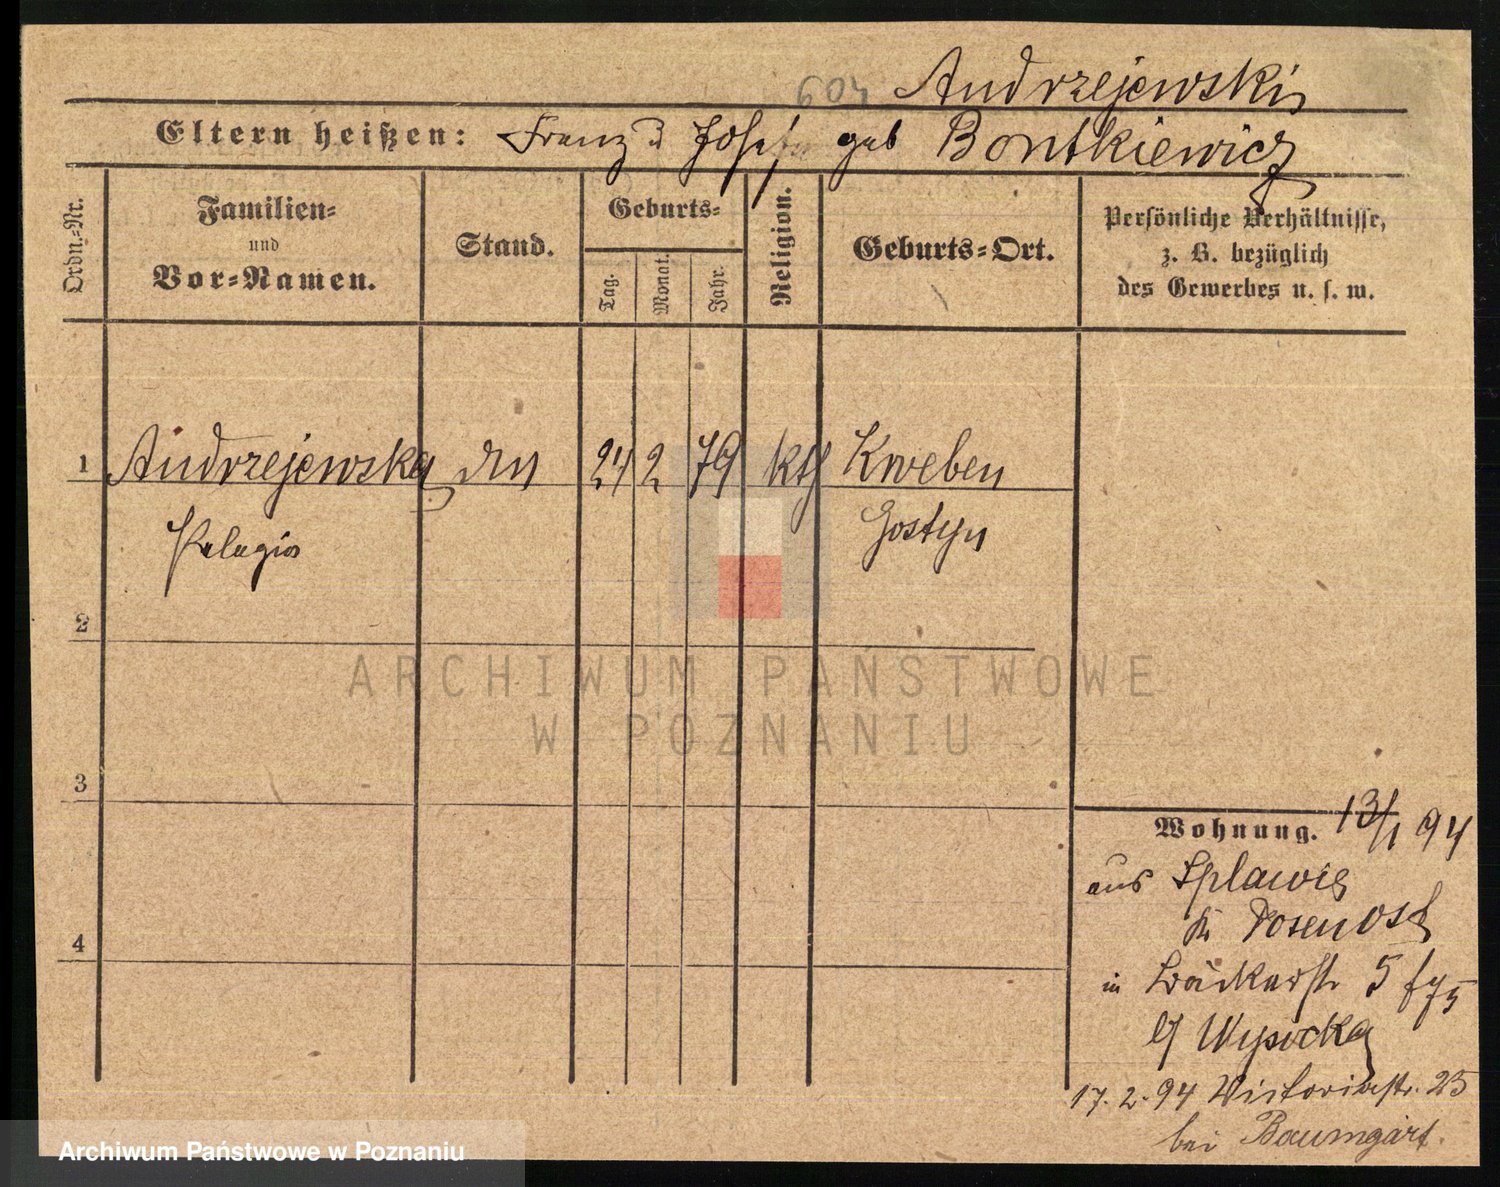 604 Andrzejewski
Eltern heißen: Franz u Josefa geb Bontkiewicz
Ordn.-Nr.
Familien-
und
Vor-Namen.
Stand.
Geburts-
Tag.
Monat.
Jahr.
Religion.
Geburts-Ort.
Persönliche Verhältnisse,
z. B. bezüglich
des Gewerbes u. s. w.
1 Andrzejewska 24 2 79 kth Kroeben
Pelagia Gostyn
2
3
4
Wohnung. 13/1 94
aus Splawie
Kr Posen Ost
in Bäckerstr 5
b/ Wysocka
17. 2. 94 Victoriastr. 25
bei Baumgart.
ARCHIWUM PAŃSTWOWE
W POZNANIU
Archiwum Państwowe w Poznaniu